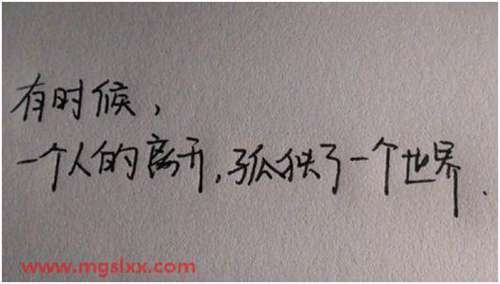 有时候，
一个人的离开，孤独了一个世界.
www.mgslxx.com